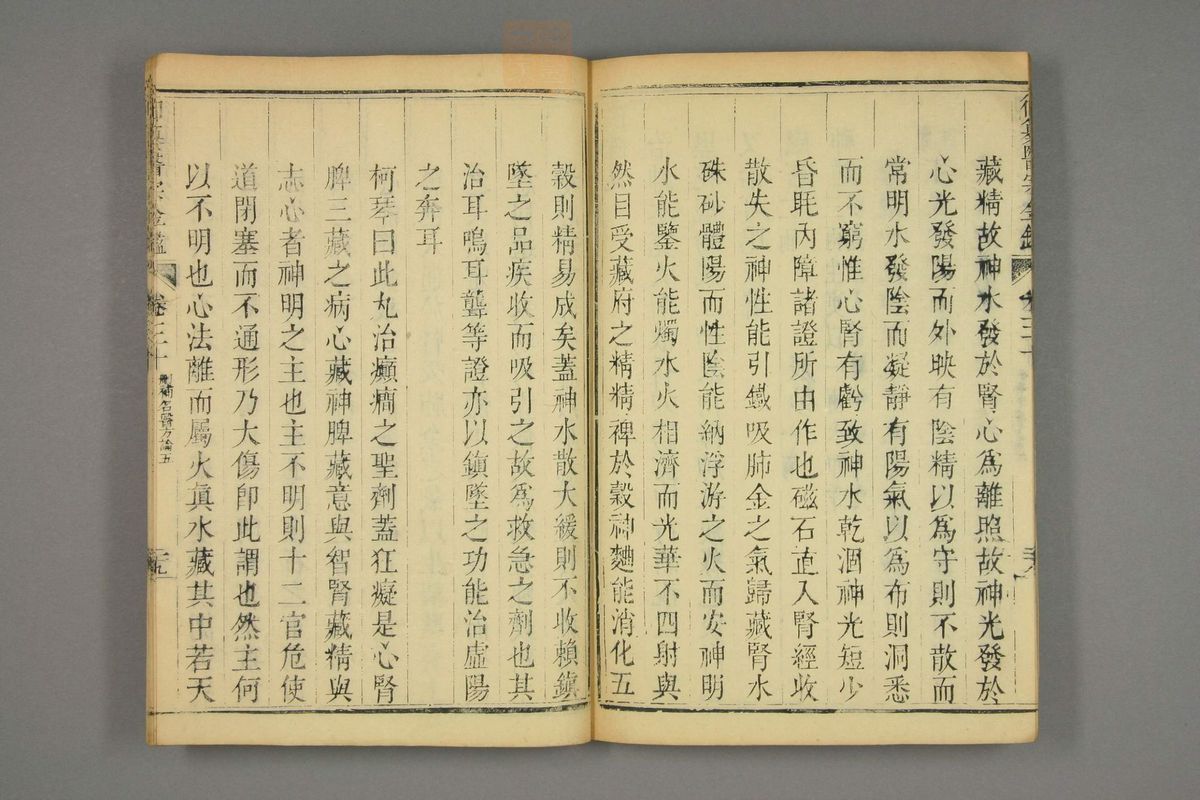 藏精故神水發於腎心爲離照故神光發於
心光發陽而外映有陰精以爲守則不散而
常明水發陰而凝靜有陽氣以爲布則洞悉
而不窮惟心腎有虧致神水乾涸神光短少
昏眊內障諸證所由作也磁石直入腎經收
散失之神性能引鐵吸肺金之氣歸藏腎水
硃砂體陽而性陰能納浮游之火而安神明
水能鑒火能燭水火相濟而光華不四射與
然目受藏府之精精裨於穀神麯能消化五
穀則精易成矣蓋神水散大緩則不收賴鎮
墜之品疾收而吸引之故爲救急之劑也其
治耳鳴耳聾等證亦以鎮墜之功能治虛陽
之奔耳
柯琴曰此丸治癲癇之聖劑蓋狂癡是心腎
脾三藏之病心藏神脾藏意與智腎藏精與
志心者神明之主也主不明則十二官危使
道閉塞而不通形乃大傷卽此謂也然主何
以不明也心法離而屬火眞水藏其中若天
御纂醫宗金鑑
卷三十
刪補名醫方論五